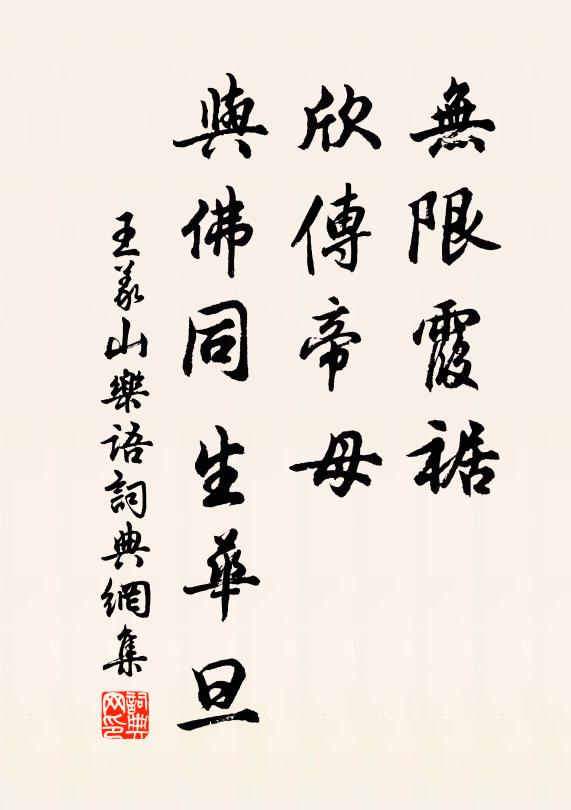 無限霞裾
欣傳帝母
與佛同生華旦
王義山樂語詞典網集
詞典网印